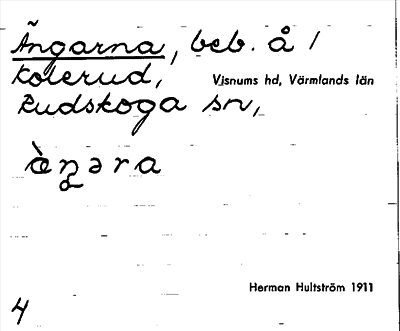 Ängarna, beb. å /
Kolerud, Visnums hd, Värmlands län
Rudskoga sn,
àŋəra
Herman Hultström 1911
4